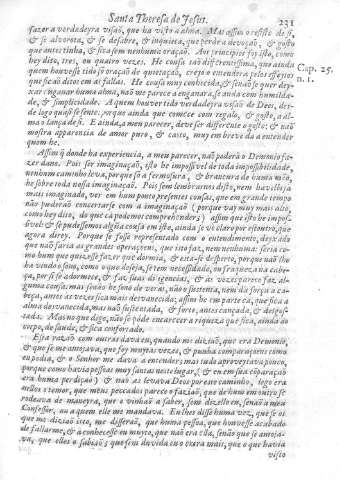 Santa Theresa de Jesus. 231
fazer a verdadeyra visaõ, que ha visto a alma. Mas assim o resiste de si,
& se alvorota, & se desabre, & inquieta, que perde a devoçaõ, & gosto
que antes tinha, & fica sem nenhuma oraçaõ. Aos principios foy isto, como
hey dito, tres, ou quatro vezes. He cousa taõ differentissima, que ainda
quem houvesse tido só oraçaõ de quietaçaõ, creyo o entenderá pelos effeytos
que ficaõ ditos em as fallas. He cousa muy conhecida, & senaõ se quer dey-
xar enganar huma alma, naõ me parece a enganará, se anda com humilda-
de, & simplicidade. A quem houver tido verdadeyra visaõ de Deos, des-
de logo quasi se sente; porque ainda que comece com regalo, & gosto, a al-
ma o lança de si. E ainda, a meu parecer, deve ser differente o gosto; & naõ
mostra apparencia de amor puro, & casto, muy em breve dá a entender
quem he.
Cap. 25.
n. 1.
Assim q̃ donde ha experiencia, a meu parecer, naõ poderá o Demonio fa-
zer dano. Pois ser imaginaçaõ, isto he impossivel de toda impossibilidade,
nenhum caminho leva, porque só a fermosura, & brancura de huma maõ,
he sobre toda nossa imaginaçaõ. Pois sem lembrarnos disto, nem havello já
mais imaginado, ver em hum ponto presentes cousas, que em grande tempo
naõ puderaõ concertarse com a imaginaçaõ (porque vay muy mais alto,
como hey dito, do que cá podemos comprehender) assim que isto he impos-
sivel: & se pudessemos algũa cousa em isto, ainda se vé claro por estoutro, que
agora direy. Porque se fosse representado com o entendimento, deyxado
que naõ faria as grandes operaçoens, que isto faz, nem nenhuma: seria co-
mo hum que quizesse fazer que dormia, & está-se desperto, porque naõ lhe
ha vindo o sono, como o que deseja, se tem necessidade, ou fraqueza na cabe-
ça, por si se adormece, & faz suas diligencias, & às vezes parece faz al-
guma cousa: mas senaõ he sono de veras, naõ o sustenta, nem dá força à ca-
beça, antes às vezes fica mais desvanecida; assim he em parte cá, que fica a
alma desvanecida, mas naõ sustentada, & forte, antes cançada, & desgos-
tada. Mas no que digo, naõ se póde encarecer a riqueza que fica, ainda ao
corpo, dá saude, & fica confortado.
Esta razaõ com outras dava eu, quando me diziaõ, que era Demonio,
& que se me antojava, que foy muytas vezes, & punha comparaçoens como
eu podia, & o Senhor me dava a entender: mas tudo aproveytava pouco,
porque como havia pessoas muy santas neste lugar, (& eu em sua cõparaçaõ
era huma perdiçaõ) & naõ as levava Deos por este caminho, logo era
nelles o temor, que meus peccados parece o faziaõ, que de hum em outro se
rodeava de maneyra, que o vinhaõ a saber, sem dizello eu, senaõ a meu
Confessor, ou a quem elle me mandava. Eu lhes disse huma vez, que se os
que me diziaõ isto, me disseraõ, que huma pessoa, que houvesse acabado
de fallarme, & a conhecesse eu muyto, que naõ era ella, senaõ que se antoja-
va, que elles o sabiaõ; que sem duvida eu o crera mais, que o que havia
visto